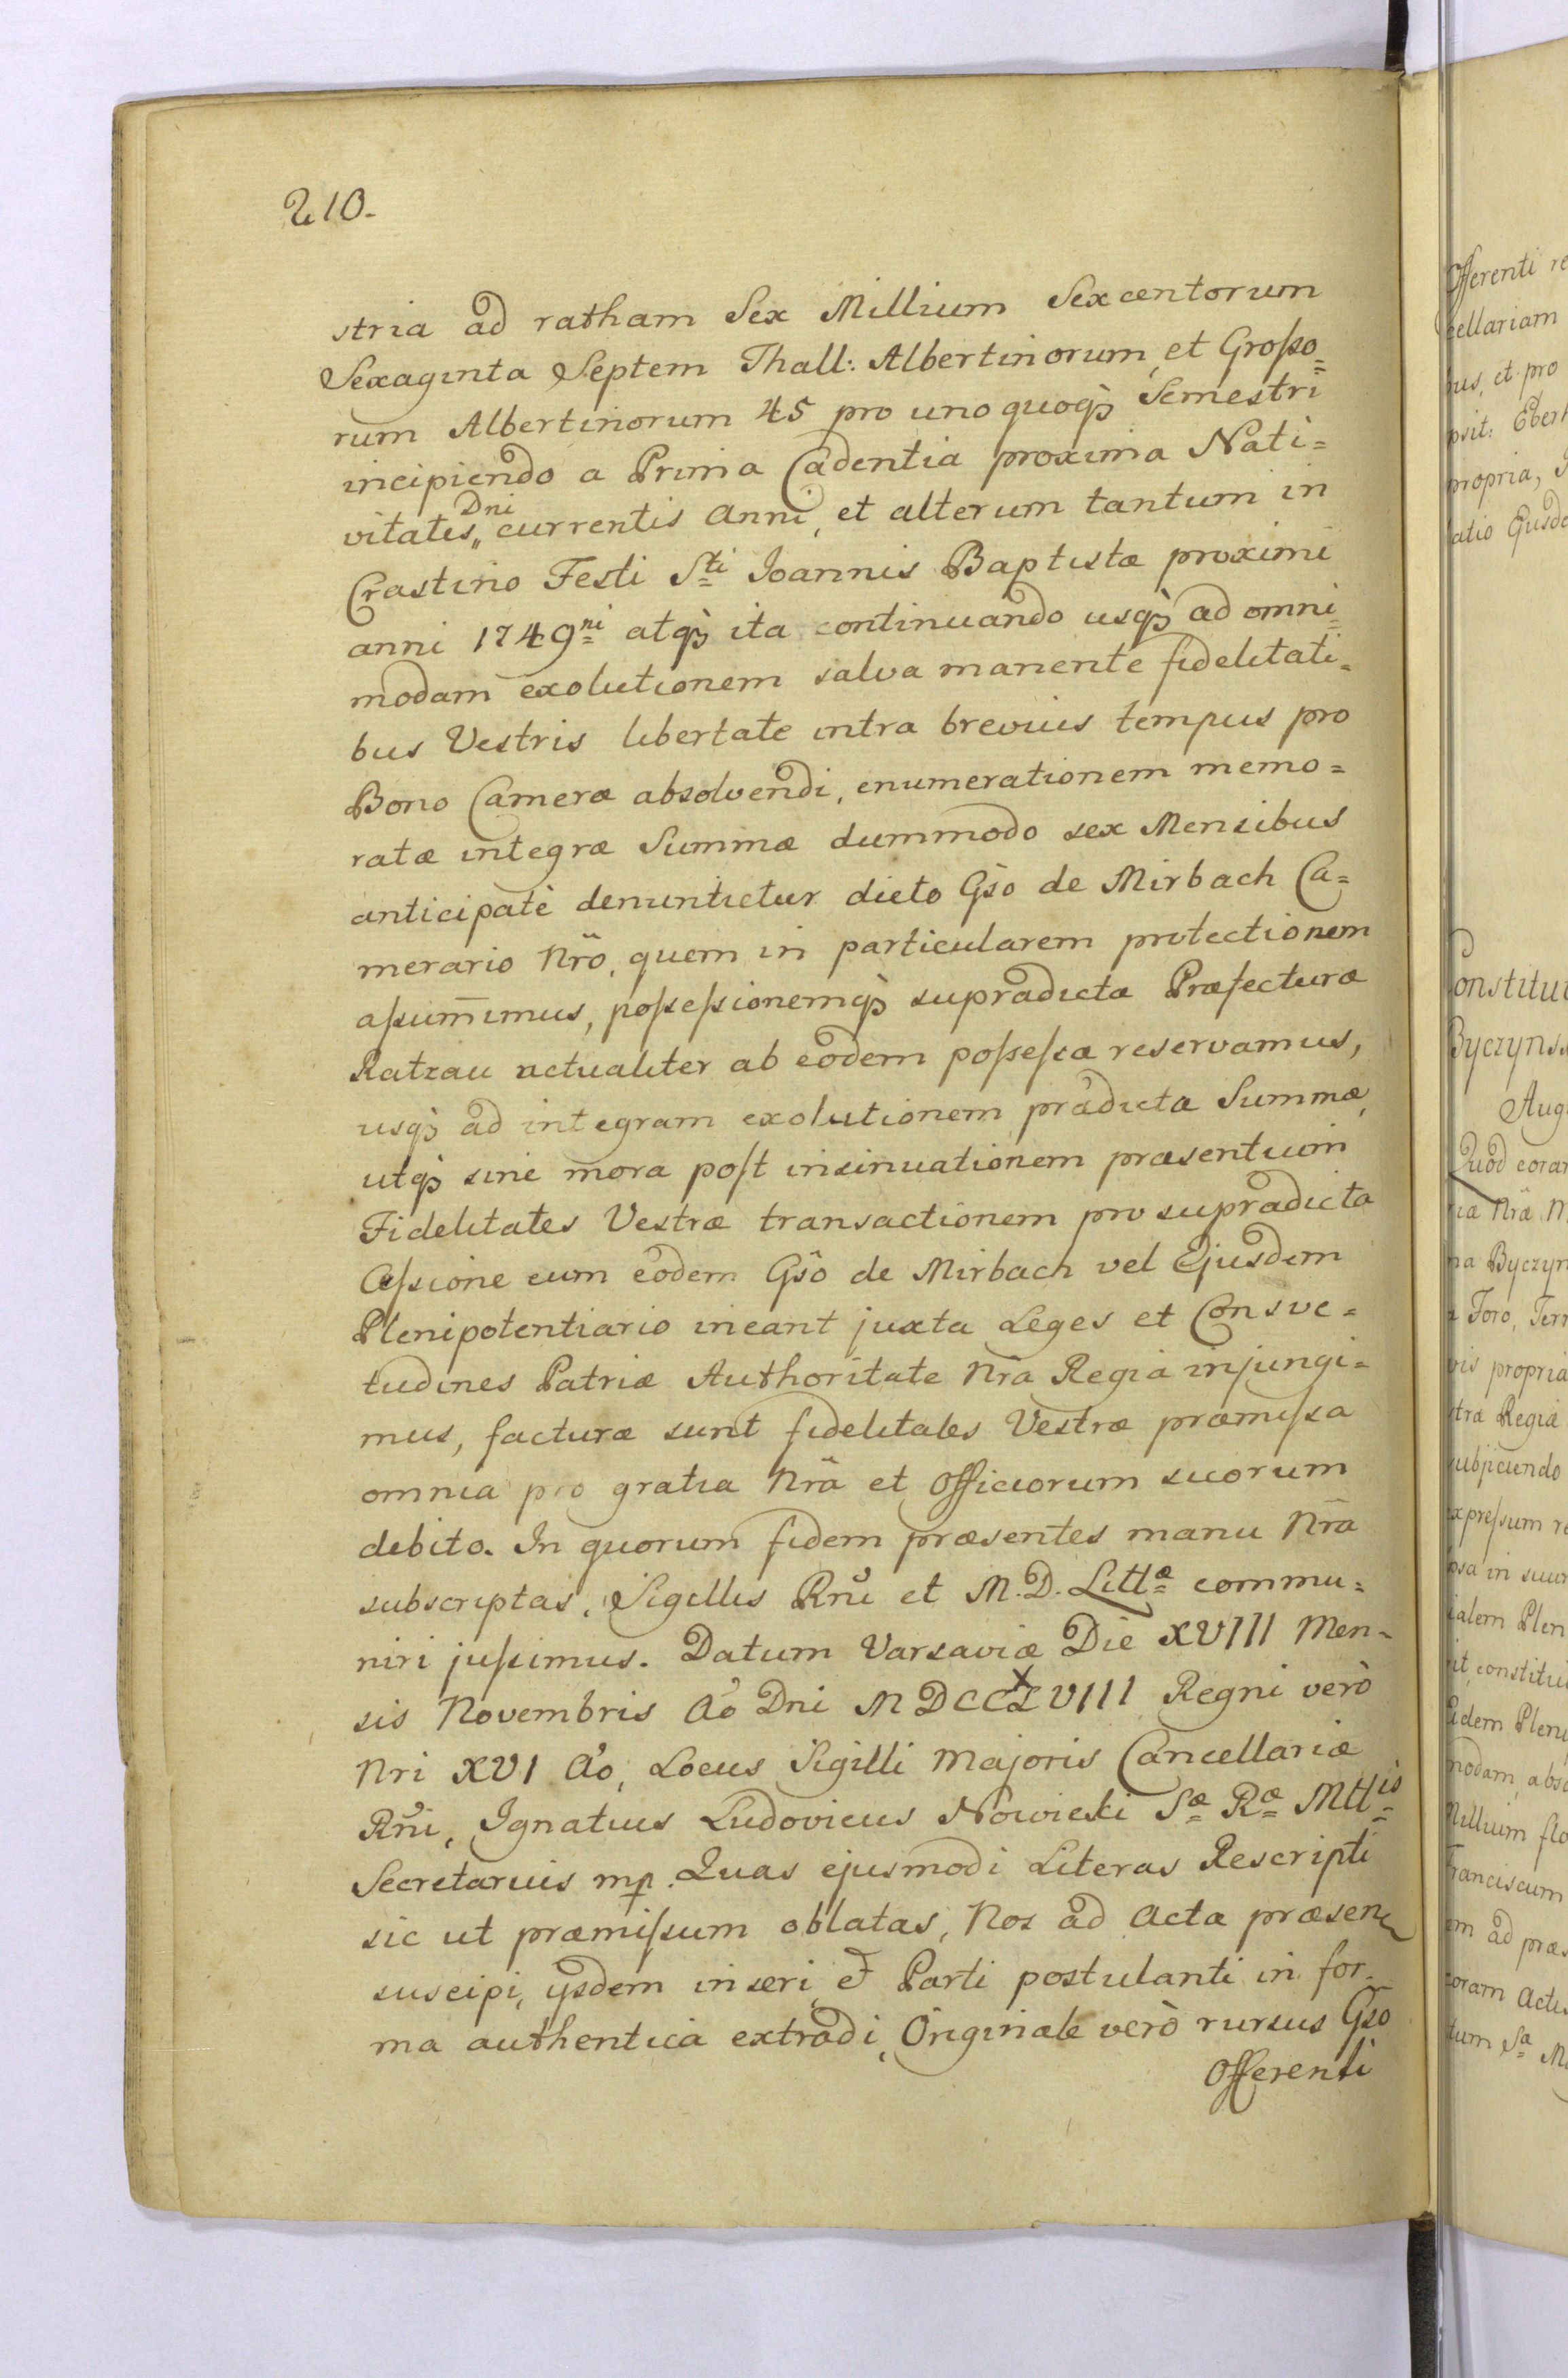 210.
stria ad ratham Sex Millium Sexcentorum
Sexaginta Septem Thall: Albertinorum, et Groſso=
rum Albertinorum 45 pro uno quoqꝫ Semestri
incipiendo a Prima Cadentia proxima Nati=
Dni
vitatis,, currentis Anni, et alterum tantum in
Crastino Festi Sti Joannis Baptistæ proximi
anni 1749ni atqꝫ ita continuando usqꝫ ad omni=
modam exolutionem salva manente fidelitati=
bus Vestris libertate intra brevius tempus pro
Bono Cameræ absolvendi, enumerationem memo=
ratæ integræ Summæ dummodo sex Mensibus
anticipatè denuntietur dicto Gso de Mirbach Ca=
merario Nrõ, quem in particularem protectionem
aſsum̄imus, poſseſsionemqꝫ supradictæ Præfecturæ
Ratzau actualiter ab eodem poſseſsæ reservamus,
usqꝫ ad integram exolutionem prædictæ Summæ,
utqꝫ sine mora poſt insinuationem præsentium
Fidelitates Vestræ transactionem pro supradicta
Ceſsione cum eodem Gso de Mirbach vel Ejusdem
Plenipotentiario ineant juxta Leges et Consve=
tudines Patriæ Authoritate Nrã Regia injungi=
mus, facturæ sunt fidelitates Vestræ præmiſsa
omnia pro gratia Nrã et Officiorum suorum
debito. In quorum fidem præsentes manu Nrã
subscriptas, Sigillis Rni et M.D. Littæ commu=
niri juſsimus. Datum Varsaviæ Die XVIII Men=
sis Novembris Ao Dni MDCCXLVIII Regni verò
Nri XVI Ao, Locus Sigilli Majoris Cancellariæ
Rni, Ignatius Ludovicus Nowicki Sæ Ræ Mttis
Secretarius mp. Quas ejusmodi Literas Rescripti
sic ut præmiſsum oblatas, Nos ad Acta præsen
suscipi, ijsdem inseri, et Parti postulanti in for=
ma authentica extradi, Originale verò rursus Gso
Offerenti
Offerenti re
cellariam
bus, et pro
propria,
Ejusde
Constitut
Byczyns
Aug
Quod coram
Nrã
Byczyn
Foro, Terr
vis propria
Regia
subjiciendo
expreſsum re
in suum
Plen
constitui
Plen
modam, abso
Millium flo
Franciscum
ad præs
coram Actis
Sa